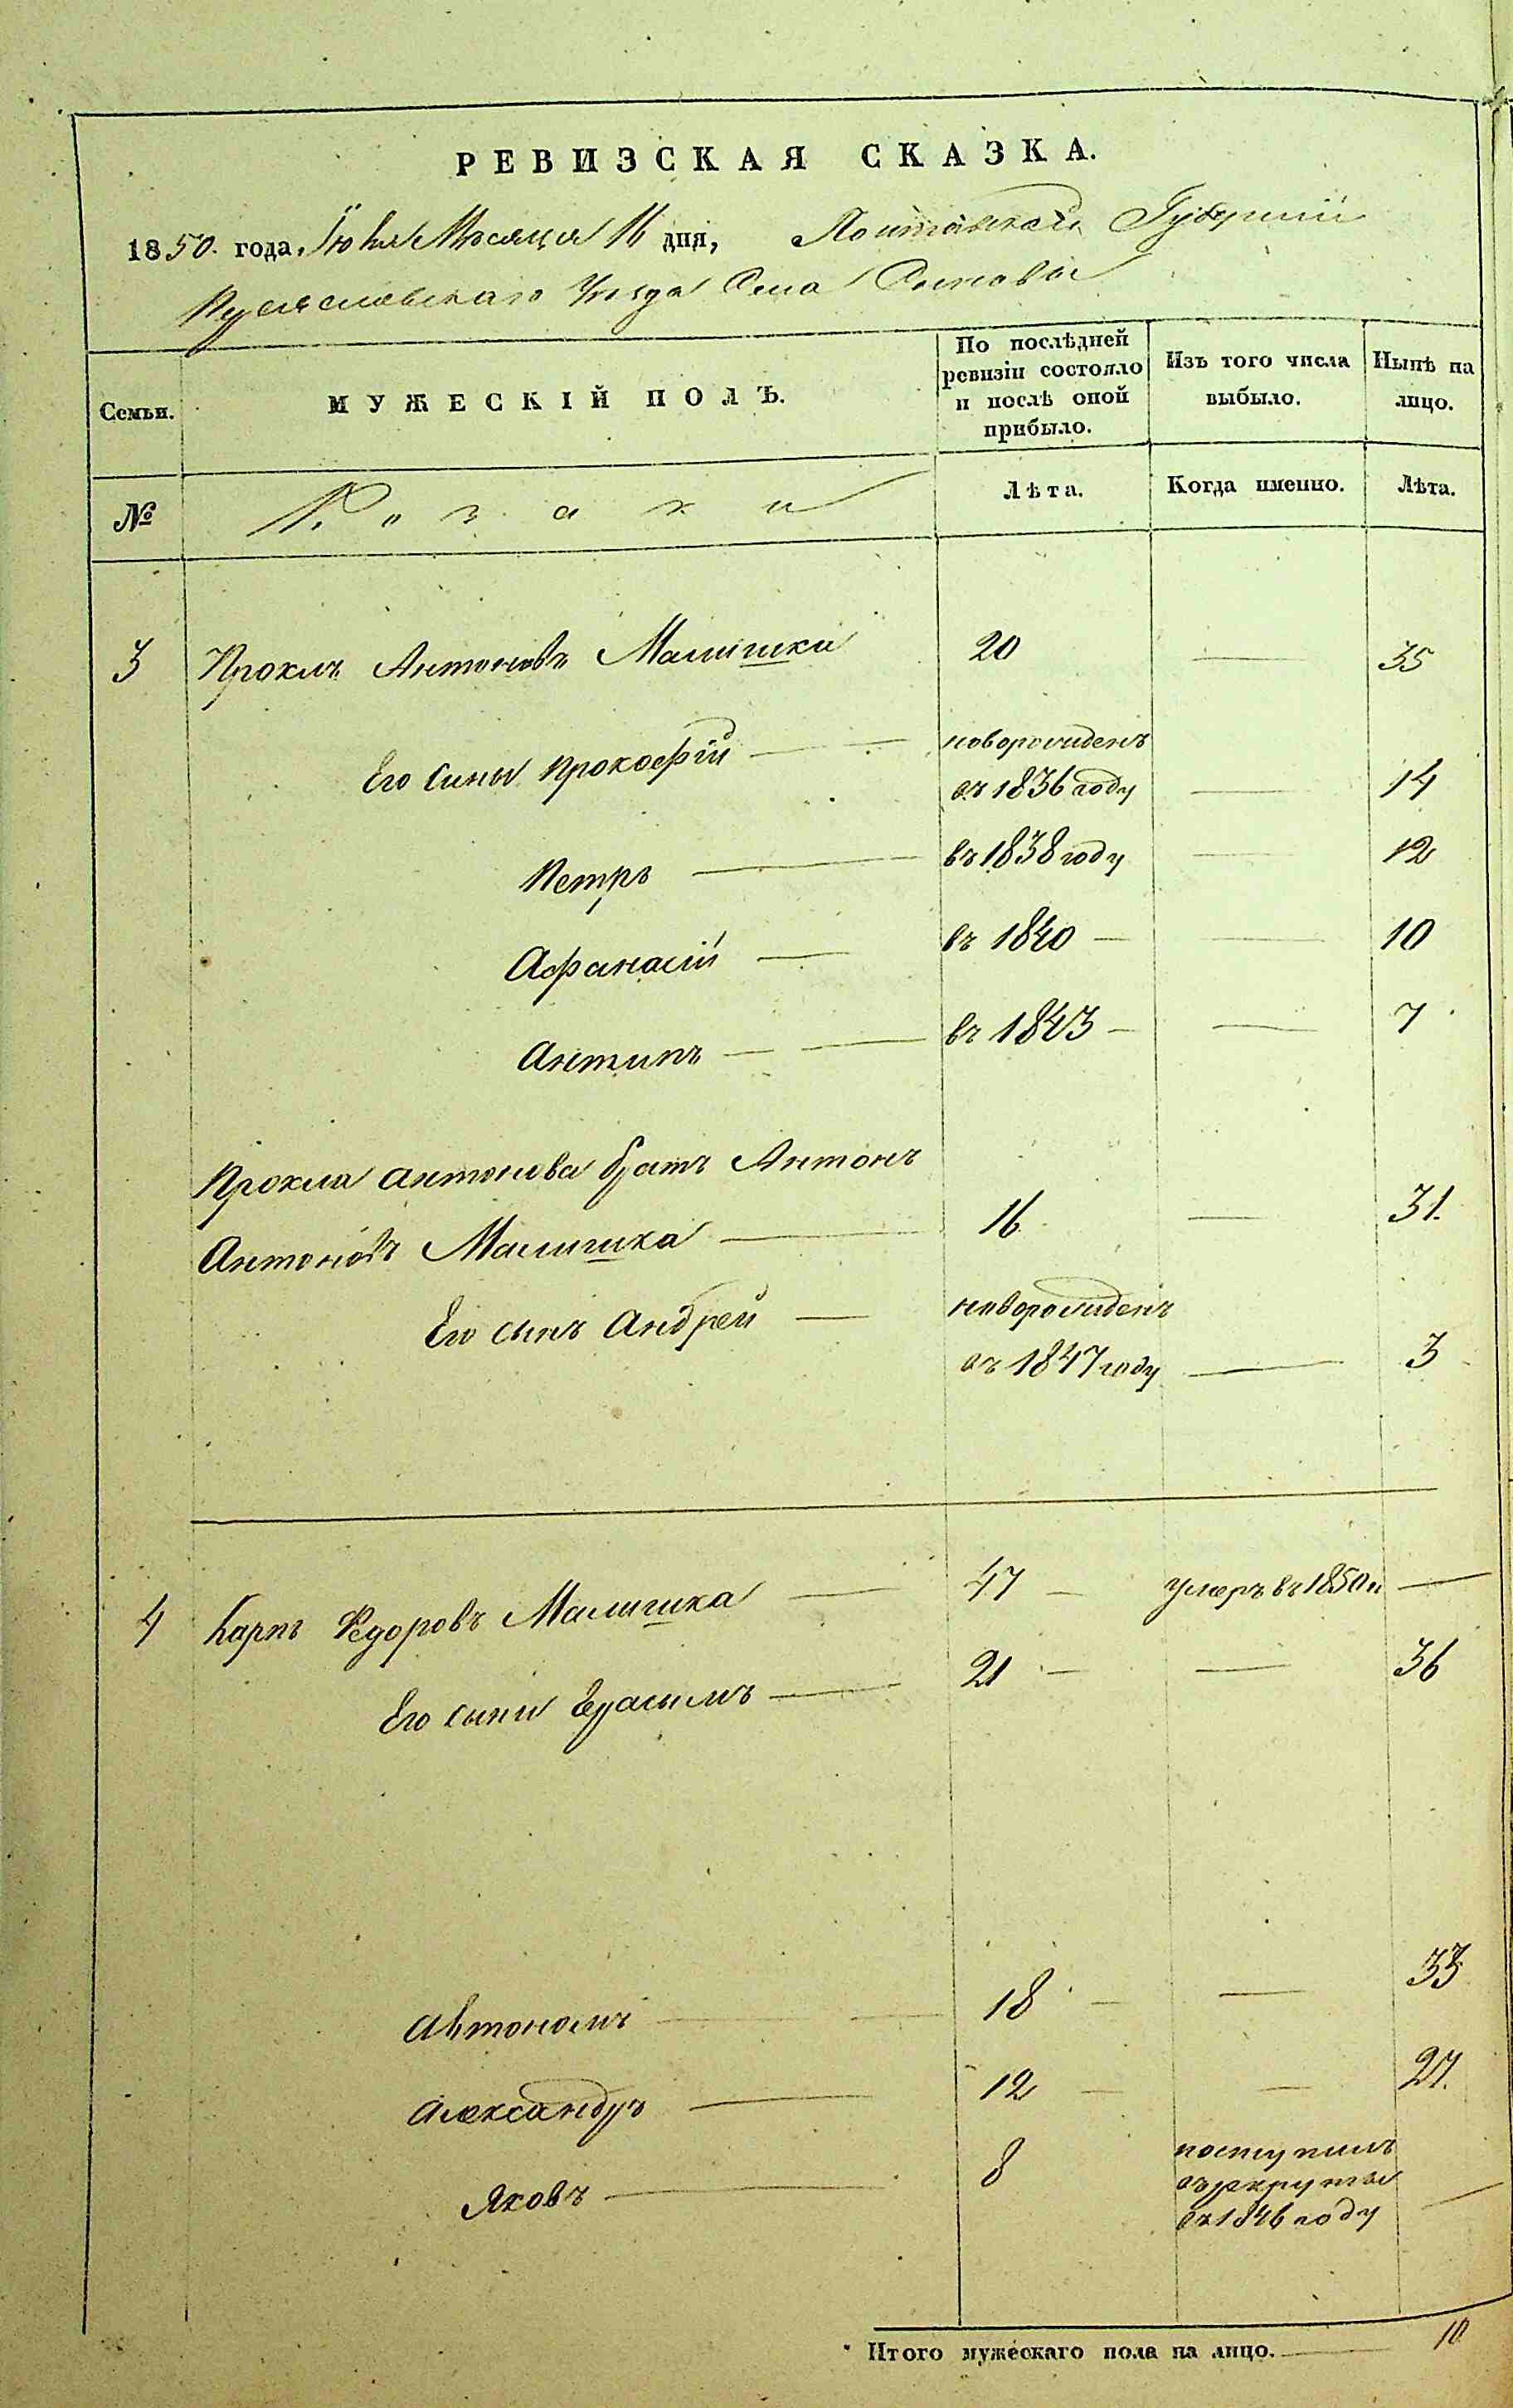 РЕВИЗСКАЯ СКАЗКА.
1850. года, Іюня Мѣсяца 16 дня, Полтавской Губерніи
Переяславскаго Уѣзда Села
Семьи.
МУЖЕСКІЙ ПОЛЪ.
По послѣдней ревизіи состояло и послѣ оной прибыло.
Изъ того числа выбыло.
Нынѣ на лицо.
№
Козаки
Лѣта.
Когда именно.
Лѣта.
3 Проклъ Антоновъ Малишка 20 — 35
Его сины Прокофій — новорожденъ
въ 1836 году — 14
Петръ — въ 1838 году — 12
Афанасій — въ 1840 — — 10
Антипъ — въ 1843 — — 7
Прокла Антонова братъ Антонъ
Антоновъ Малишка — 16 — 31.
Его сынъ Андрей — новорожденъ
въ 1847 году — 3
4 Карпъ Федоровъ Малишка — 47 — умеръ въ 1850 —
Его сыни Герасимъ — 21 — — 36
Автономъ — 18 — — 33
Александръ — 12 — — 27.
Яковъ — 8 поступилъ
въ рекруты
въ 1846 году —
Итого мужескаго пола на лицо. — 10